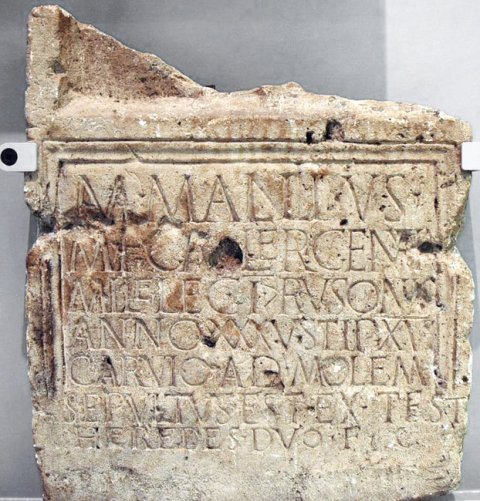 M·MALLIVS
M·F·GALER·GENV
MILE·LEG·I·RVSONIS
ANNO·XXXV·STIP·XV
CARVIO·AD·MOLEM
SEPVLTVS·EST·EX·TEST
HEREDES·DVO·F·C